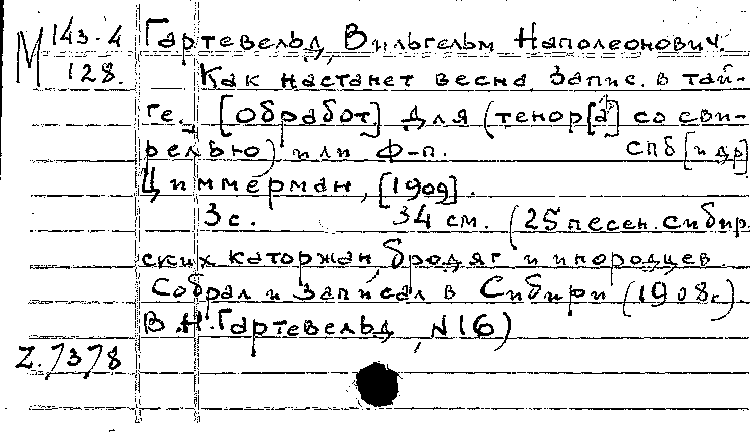 М 143-4
128.
Гартевельд, Вильгельм Наполеонович.
Как настанет весна. Запис. в тай-
ге. [Обработ] для (тенор[а] со сви-
релью) или ф-п. СПб [и др]
Циммерман, [1909].
3 с. 34 см. (25 песен сибир
ских каторжан, бродяг и инородцев.
Собрал и записал в Сибири (1908г.)
В.Н. Гартевельд, N 16)
Z.7378